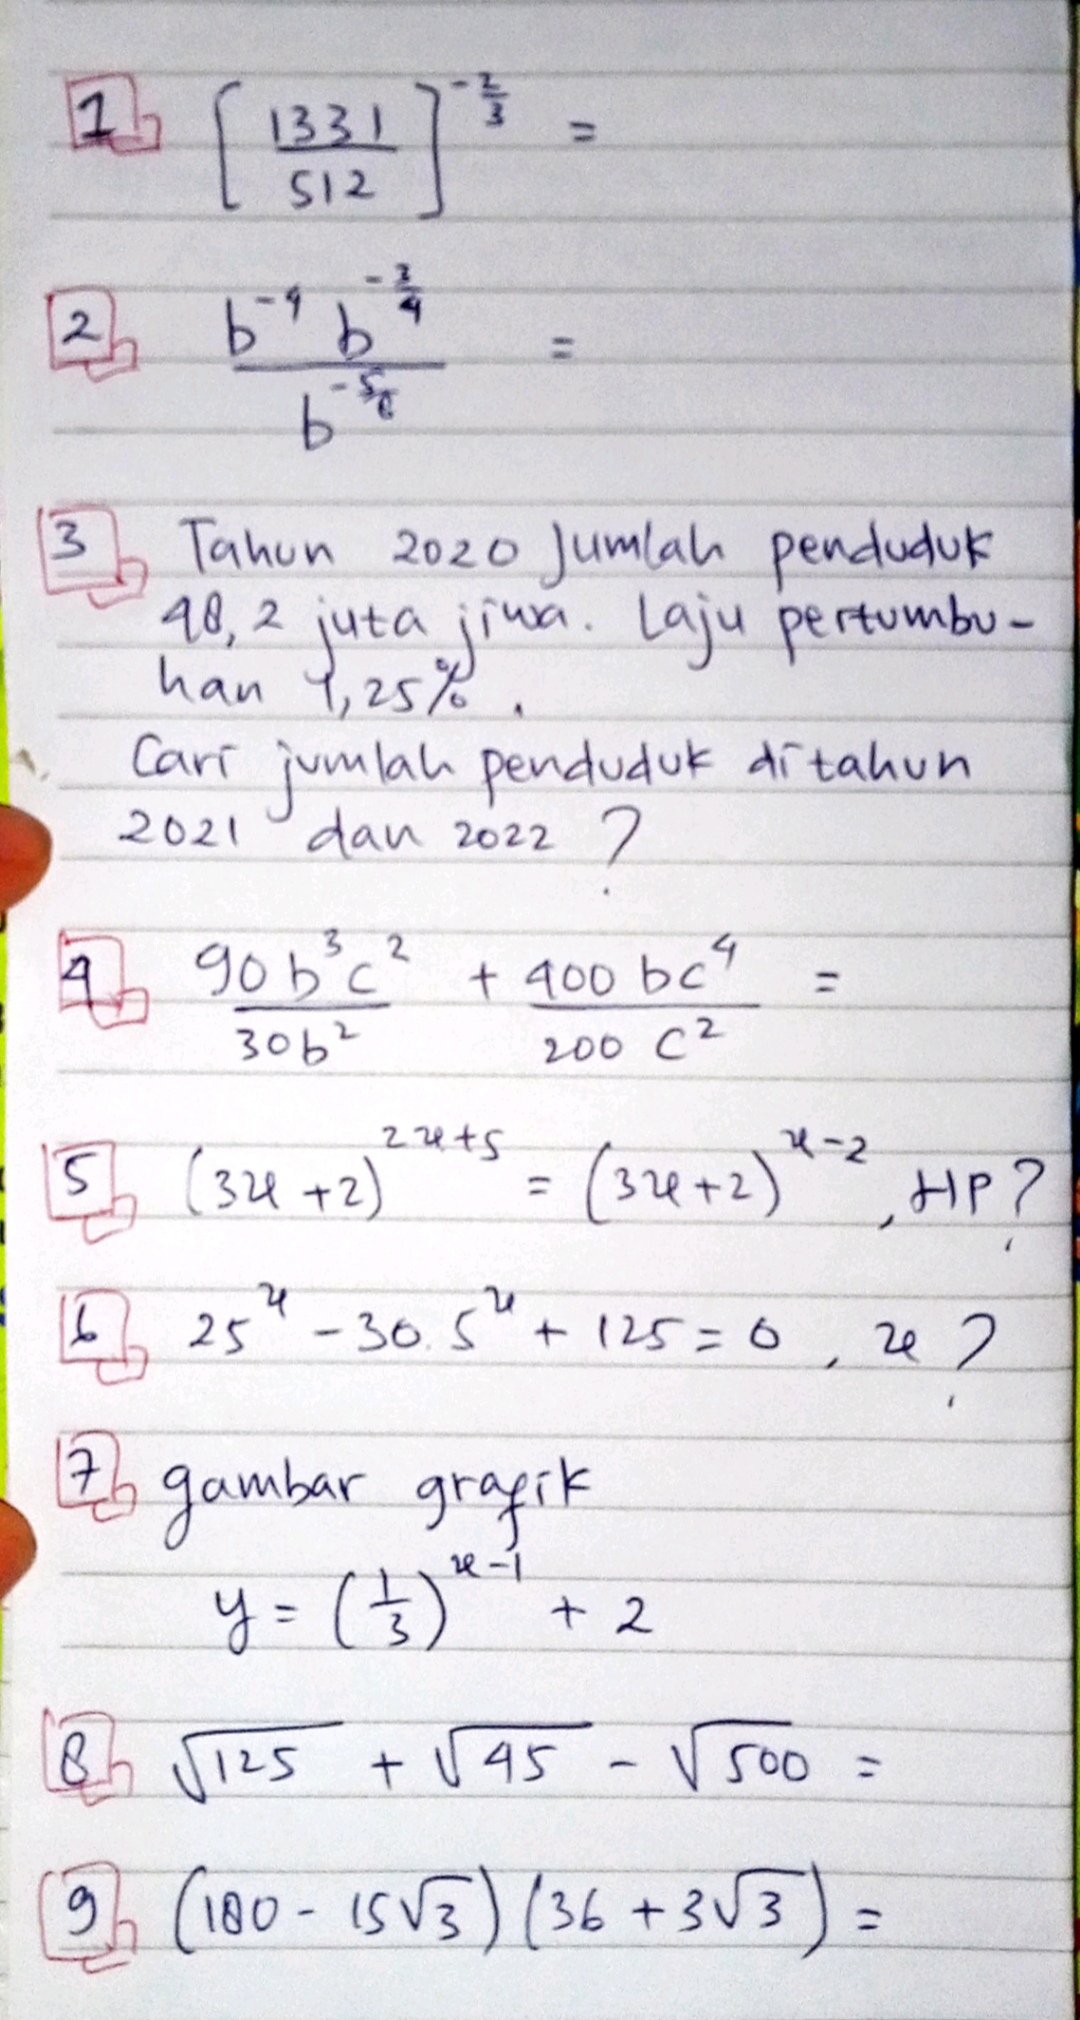 1 [1331/512]^(-2/3) =
2 (b^-4 b^(-3/4)) / b^(-5/8) =
3 Tahun 2020 Jumlah penduduk
48,2 juta jiwa. Laju pertumbu-
han 1,25%.
Cari jumlah penduduk ditahun
2021 dan 2022 ?
4 90b³c²/30b² + 400bc⁴/200c² =
5 (3x+2)^(2x+5) = (3x+2)^(x-2), HP?
6 25^x - 30.5^x + 125 = 0, x ?
7 gambar grafik
y = (1/3)^(x-1) + 2
8 √125 + √45 - √500 =
9 (180 - 15√3)(36 + 3√3) =